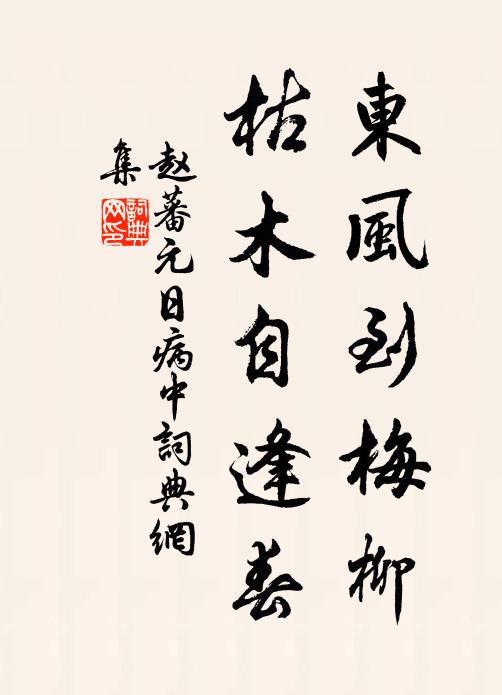 東風到梅柳
枯木自逢春
赵蕃元日病中詞典網
集
詞典
网印